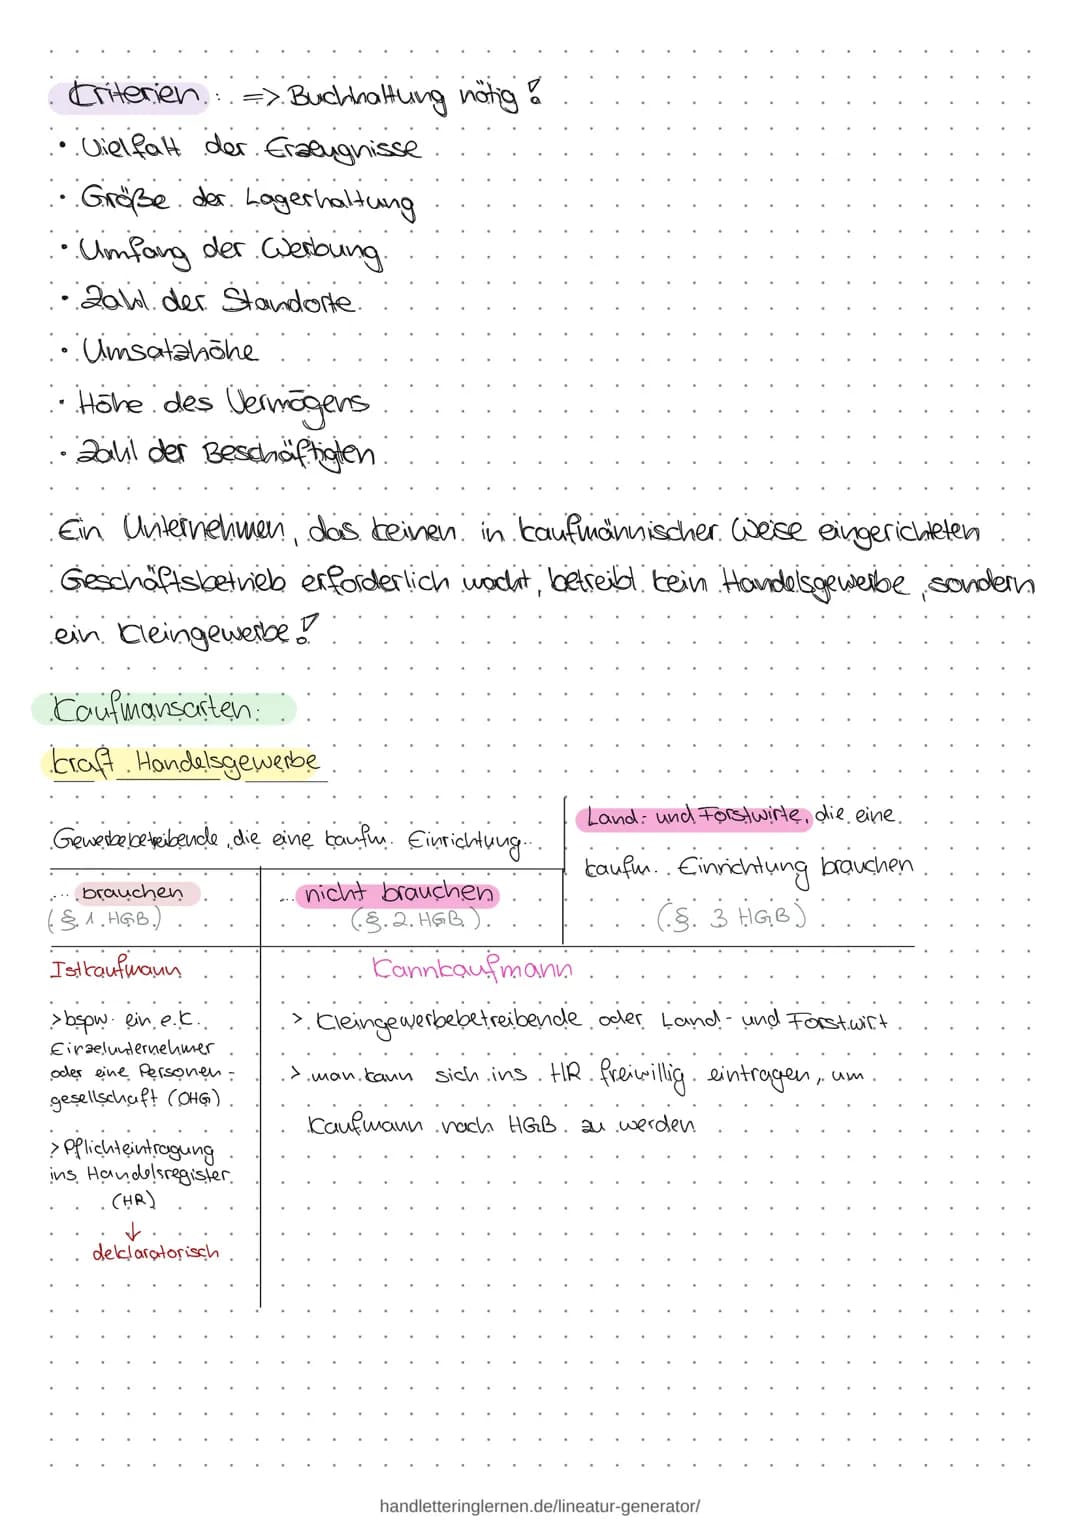 Kriterien: => Buchhaltung nötig!
• Vielfalt der Erzeugnisse
• Größe der Lagerhaltung
• Umfang der Werbung
• Zahl der Standorte
• Umsatzhöhe
• Höhe des Vermögens
• Zahl der Beschäftigten
Ein Unternehmen, das keinen in kaufmännischer Weise eingerichteten
Geschäftsbetrieb erforderlich macht, betreibt kein Handelsgewerbe, sondern
ein Kleingewerbe!
Kaufmansarten:
kraft Handelsgewerbe
Gewerbebetreibende, die eine kaufm. Einrichtung...
... brauchen
(§ 1 HGB)
... nicht brauchen
(§ 2 HGB)
Land- und Forstwirte, die eine
kaufm. Einrichtung brauchen
(§ 3 HGB)
Istkaufmann
> bspw. ein e.K.
Einzelunternehmer
oder eine Personen-
gesellschaft (OHG)
> Pflichteintragung
ins Handelsregister
(HR)
↓
deklaratorisch
Kannkaufmann
> Kleingewerbebetreibende oder Land- und Forstwirt
> man kann sich ins HR freiwillig eintragen, um
Kaufmann nach HGB zu werden
handletteringlernen.de/lineatur-generator/